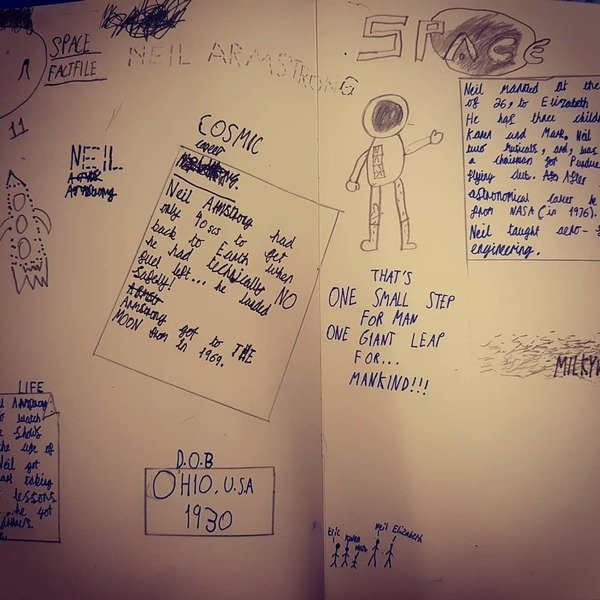 SPACE
FACTFILE
NEIL ARMSTRONG
11
NEIL
ARMSTRONG
COSMIC
CAREER
Neil Armstrong had
only 40 secs to get
back to Earth when
he had technically NO
fuel left... he landed
safely!
ARMSTRONG got to THE
MOON in 1969.
LIFE
to watch
Shows
the age of
Neil got
taking
LESSONS
...he got
D.O.B
OHIO, U.SA
1930
SPACE
Neil married at the
of 26, to Elizabeth
He has three child
Karen and Mark. Neil
two musicals, and, was
a chairman for Purdue
flying club. After
astronomical career he
from NASA (in 1976).
Neil taught aero-
engineering.
THAT'S
ONE SMALL STEP
FOR MAN
ONE GIANT LEAP
FOR...
MANKIND!!!
MILKYW
Eric Karen Mark Neil Elizabeth